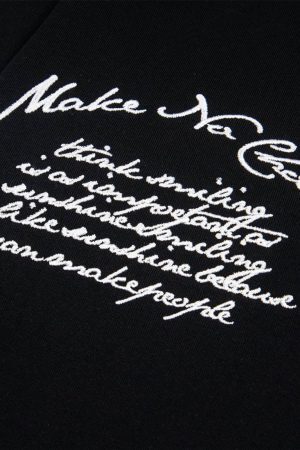 Make No
think smiling
is as important as
sunshine smiling
like sunshine because
an make people